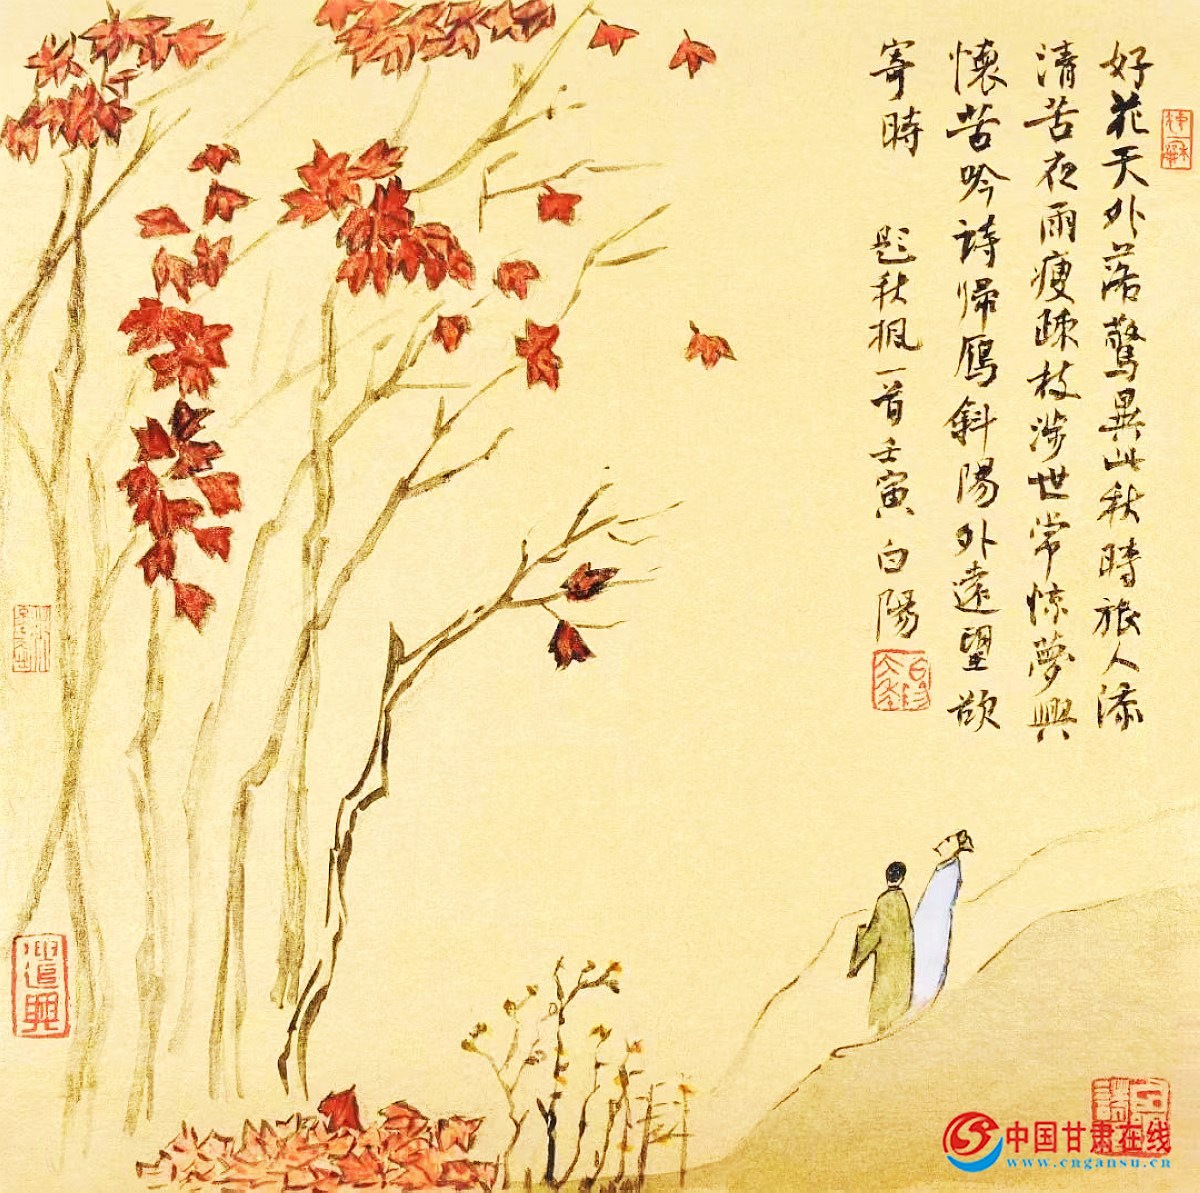 好花天外落驚異此秋時旅人添
清苦夜雨瘦疎枝涉世常惊夢興
懷苦吟詩歸鴈斜陽外遠望欲
寄時 題秋楓一首壬寅白陽
中国甘肃在线
www.cngansu.cn